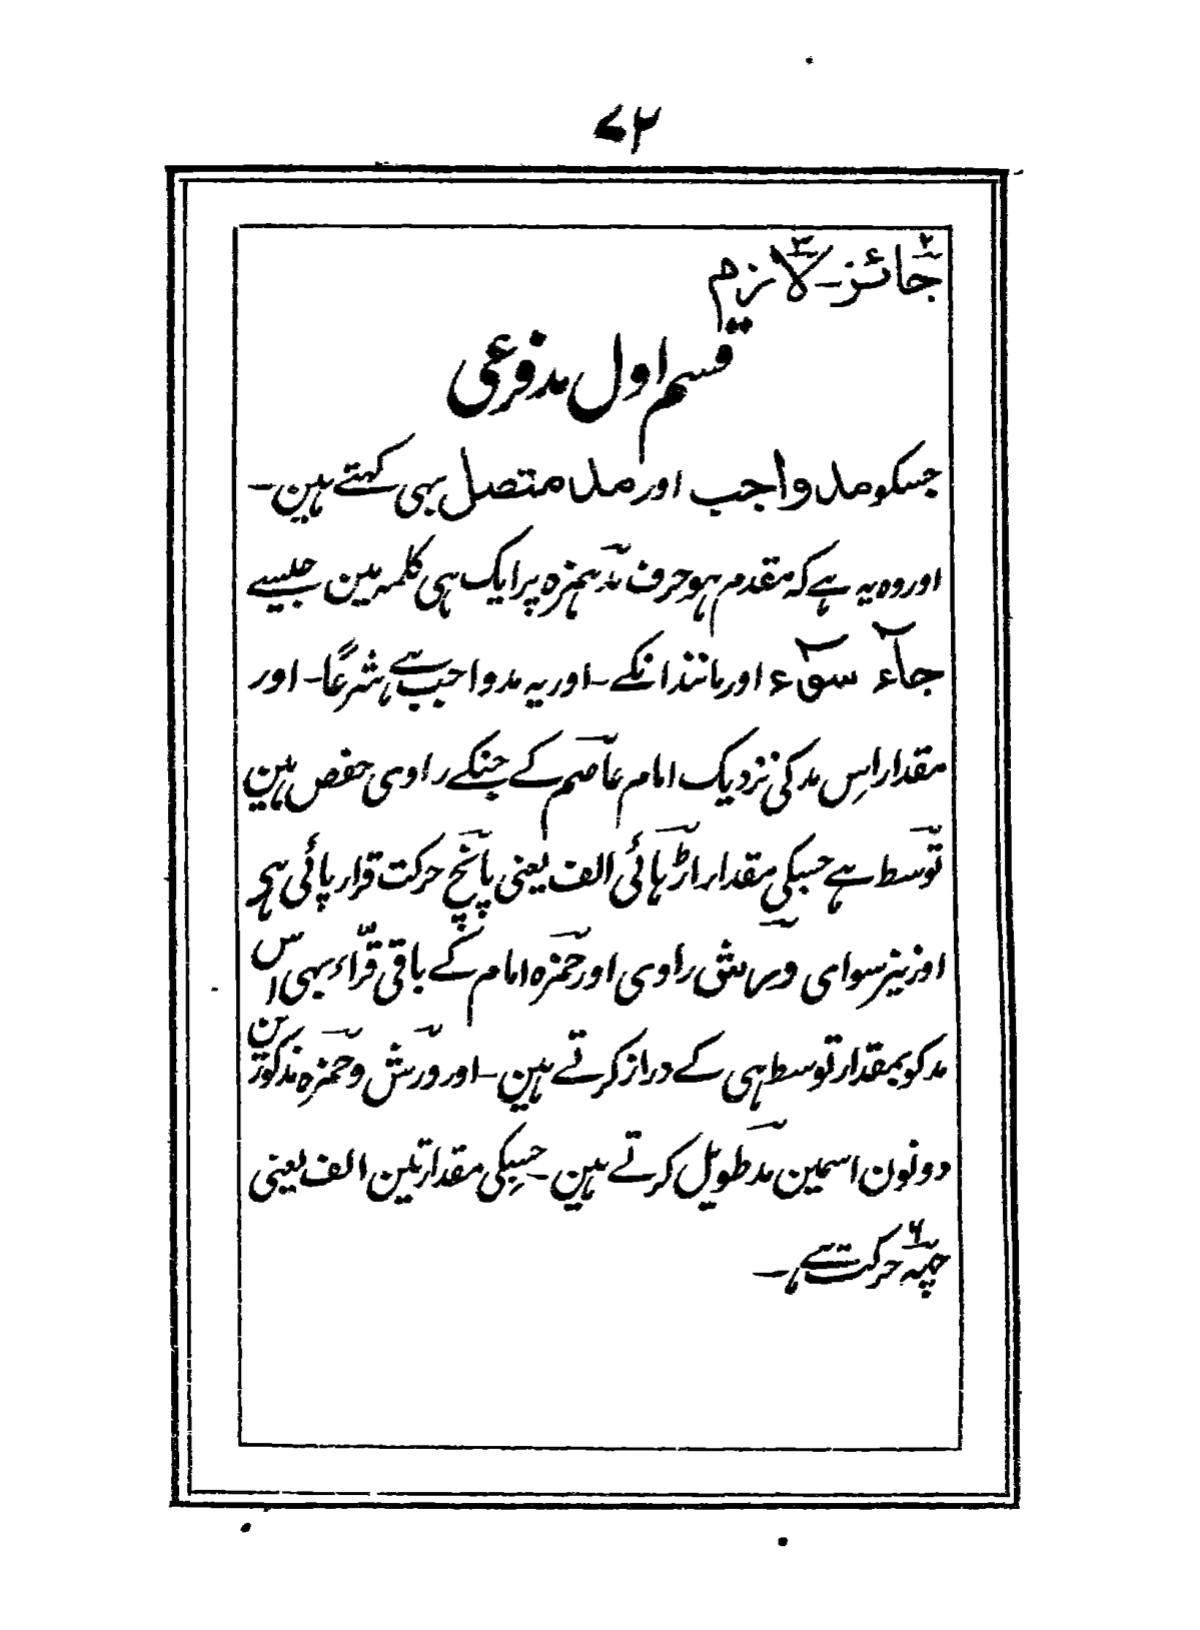 ۷۲
جائز۔ لازم
قسم اول مد فرعی
جسکو مد واجب اور مد متصل بہی کہتے ہین۔
اور وہ یہ ہے کہ مقدم ہو حرف مد ہمزہ پر ایک ہی کلمہ مین جیسے
جآء سوٓء اور مانند انکے۔ اور یہ مد واجب ہے شرعًا۔ اور
مقدار اِس مد کی نزدیک امام عاصم کے جنکے راوی حفص ہین
توسط ہے جسکی مقدار اڑہائی الف یعنی پانچ حرکت قرار پائی ہے
اور نیز سوای ورش راوی اور حمزہ امام کے باقی قرّاء بہی اس
مد کو بمقدار توسط ہی کے دراز کرتے ہین۔ اور ورش و حمزہ مذکورین
دونون اسمین مد طویل کرتے ہین۔ جسکی مقدار تین الف یعنی
چہہ ۶ حرکت ہے۔